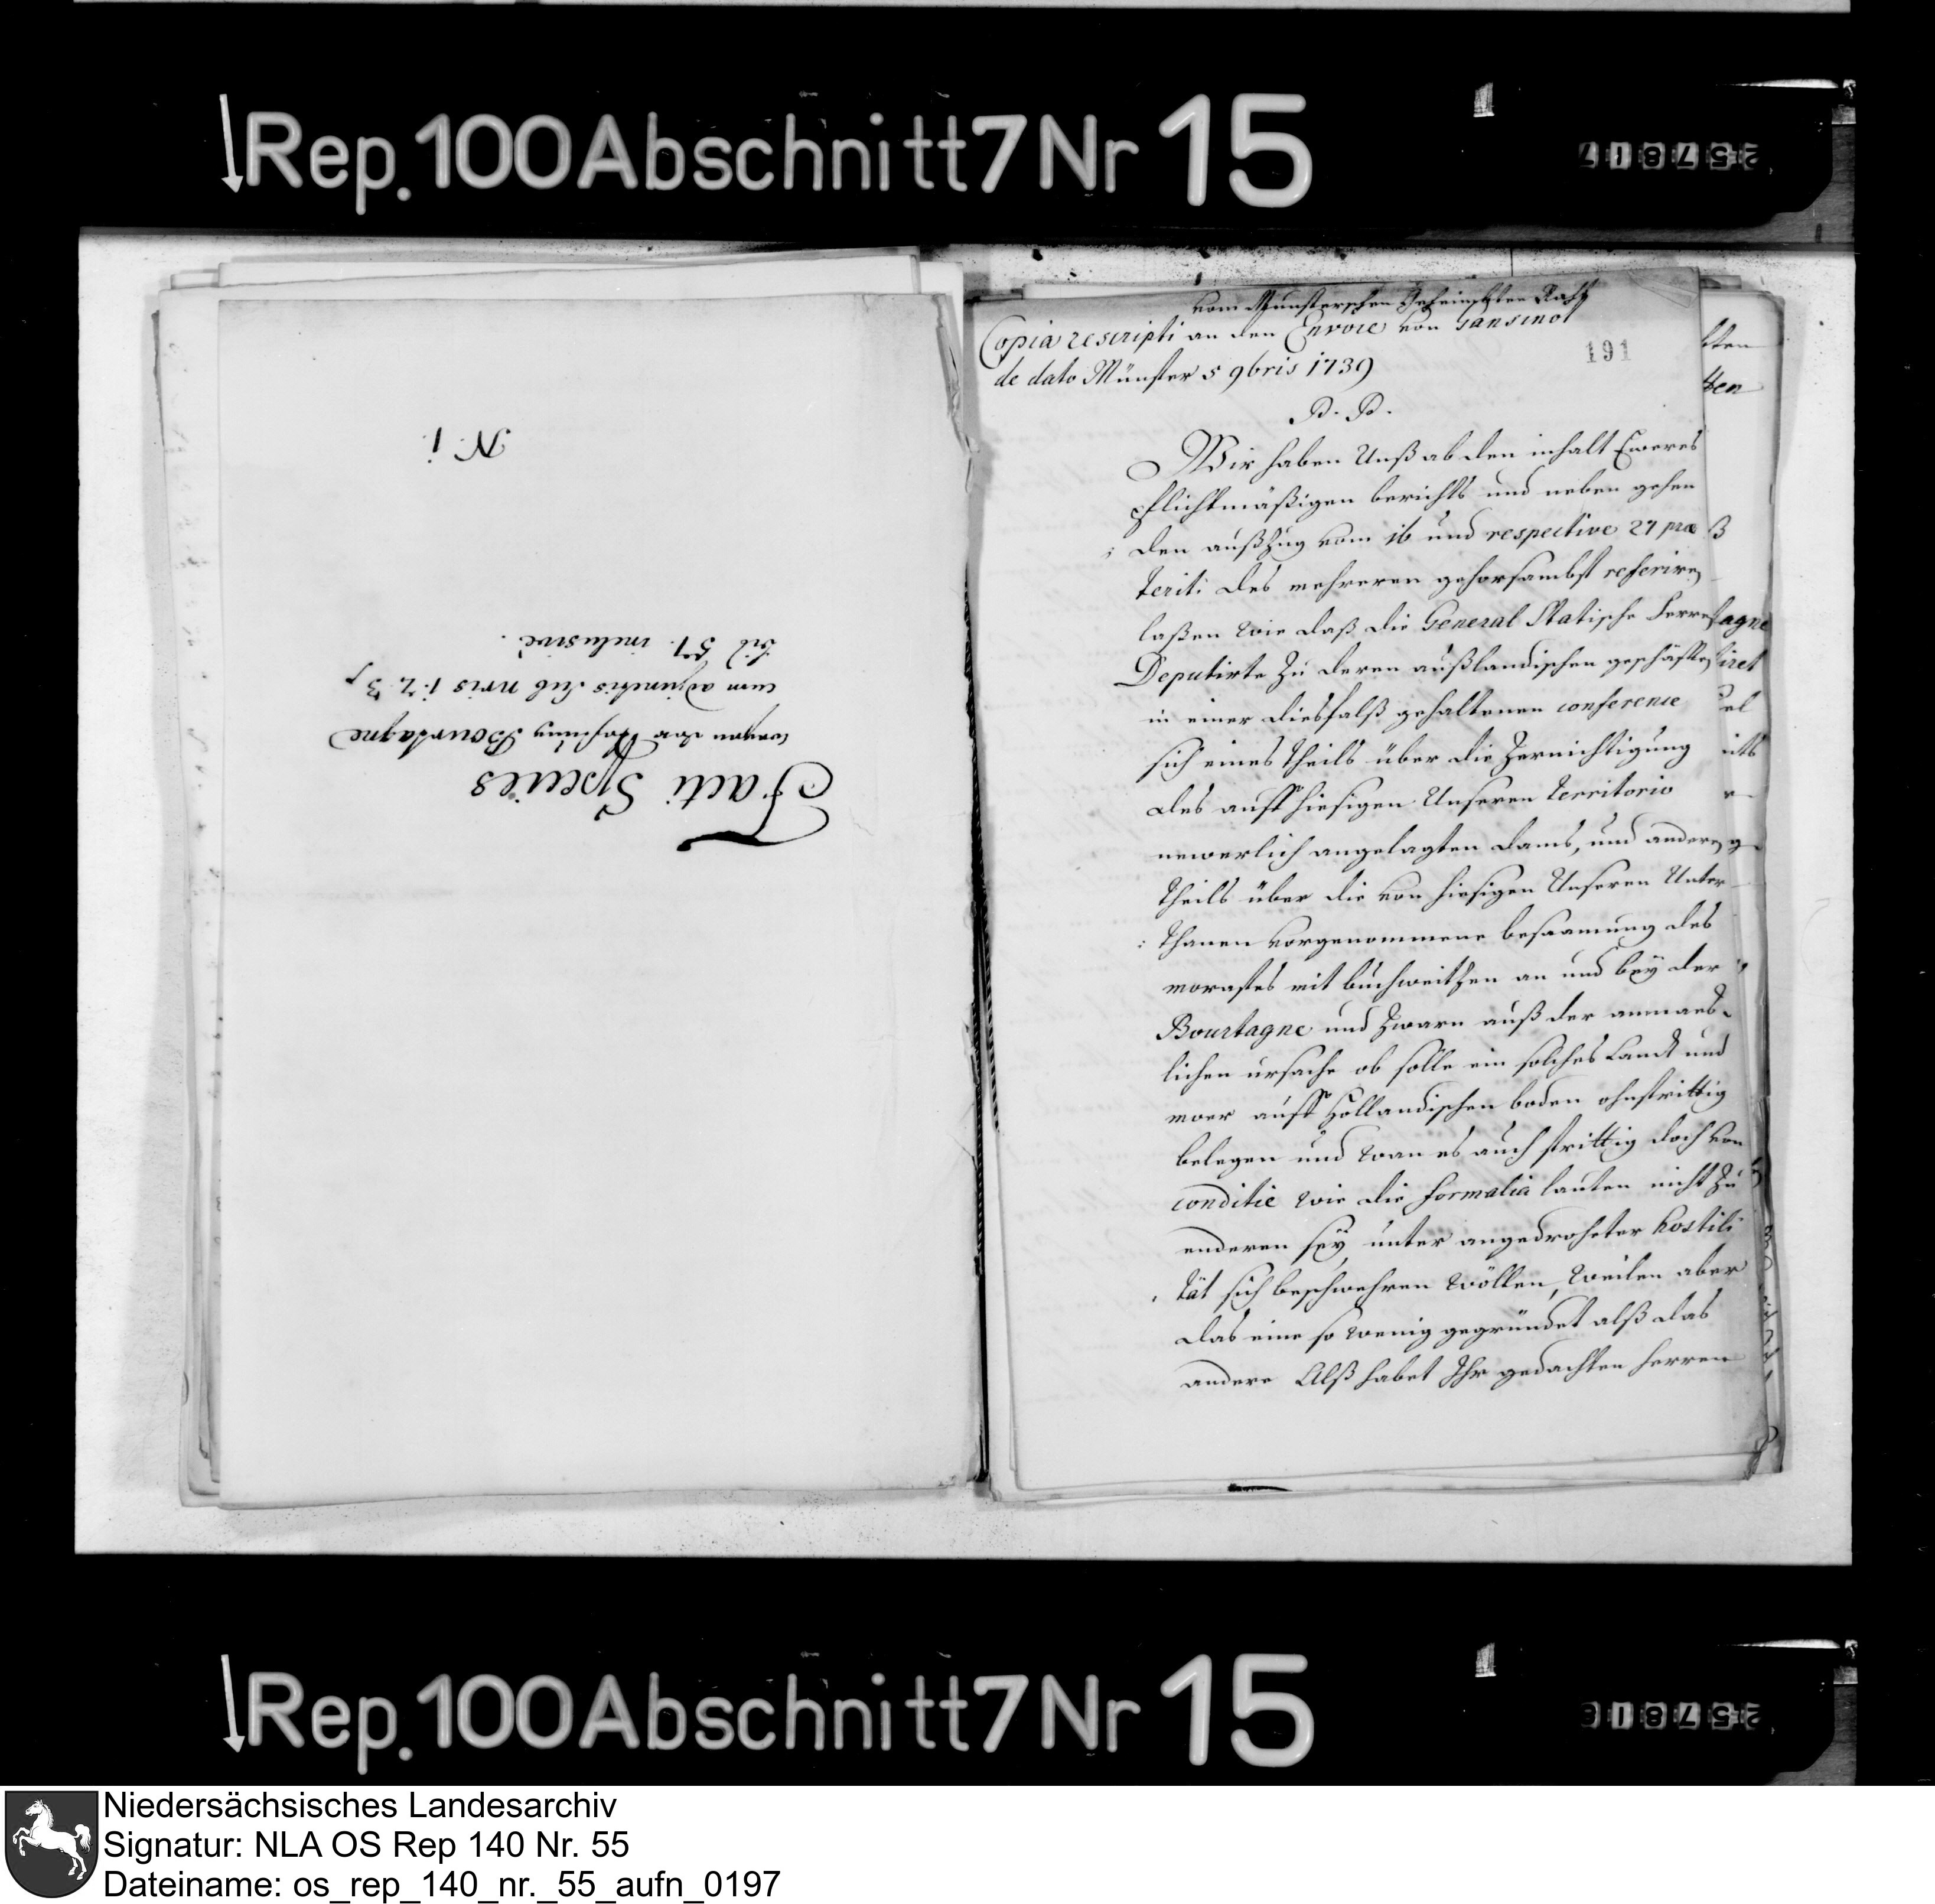 Rep. 100 Abschnitt 7 Nr 15
257817
N. 1.
Facti Species
wegen der Vestung Bourtagne
cum adjunctis sub nris 1. 2. 3
bis 57. inclusive.
vom Münsterschen Geheimbten Rath
Copia rescripti an den Envoie von Gansinot
de dato Münster 5 9bris 1739
191
P. P.
Wir haben Unß ab den inhalt Eweres
pflichtmäßigen berichts und neben gehen
den außzug vom 16 und respective 27 præ
terit: des mehreren gehorsambst referiren
laßen wie daß die General Statische Herren
Deputirte zu deren außlandischen geschäfften
in einer diesfalß gehaltenen conferenie
sich eines theils über die Zernichtigung
des auff hiesigen Unseren Territorio
newerlich angelagten dams, und anderen
theils über die von hiesigen Unseren Unter
: thanen vorgenommene besaamung des
morastes mit buchweitzen an und bey der
Bourtagne und zwarn auß der anmaes-
lichen ursache ob solle ein solches Landt und
moer auff Hollandischen boden ohnstrittig
belegen und wan es auch strittig doch von
conditie wie die formalia lauten nicht zu
enderen sey, unter angedroheter hostili
tät sich beschwehren wöllen, weilen aber
das eine so wenig gegründet alß das
andere Alß habet Ihr gedachten Herren
Rep. 100 Abschnitt 7 Nr 15
257818
Niedersächsisches Landesarchiv
Signatur: NLA OS Rep 140 Nr. 55
Dateiname: os_rep_140_nr._55_aufn_0197